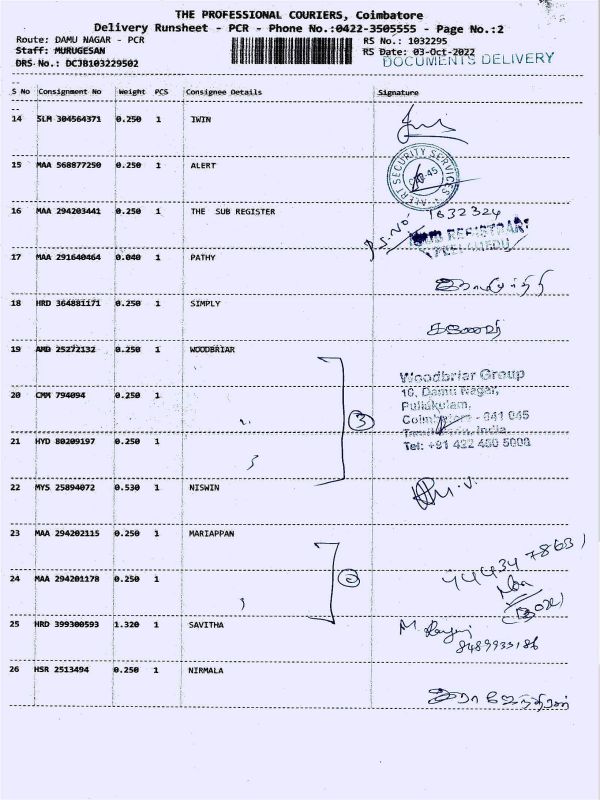 THE PROFESSIONAL COURIERS, Coimbatore
Delivery Runsheet - PCR - Phone No.:0422-3505555 - Page No.:2
Route: DAMU NAGAR - PCR
RS No.: 1032295
Staff: MURUGESAN
RS Date: 03-Oct-2022
DRS No.: DCJB103229502
DOCUMENTS DELIVERY
S No Consignment No Weight PCS Consignee Details Signature
14 SLM 304564371 0.250 1 IWIN
15 MAA 568877250 0.250 1 ALERT
ALERT SECURITY SERVICES
16 MAA 294203441 0.250 1 THE SUB REGISTER
P.S.No 1632324
SUB REGISTRAR
PEELAMEDU
17 MAA 291640464 0.040 1 PATHY
18 HRD 364881171 0.250 1 SIMPLY
19 AMD 25272132 0.250 1 WOODBRIAR
Woodbriar Group
10, Damu Nagar,
Puliakulam,
Coimbatore - 641 045
Tamilnadu, India.
Tel: +91 422 450 5008
20 CMM 794094 0.250 1
3
21 HYD 80209197 0.250 1
22 MYS 25894072 0.530 1 NISWIN
23 MAA 294202115 0.250 1 MARIAPPAN
24 MAA 294201178 0.250 1
2
25 HRD 399300593 1.320 1 SAVITHA
8489933186
26 HSR 2513494 0.250 1 NIRMALA